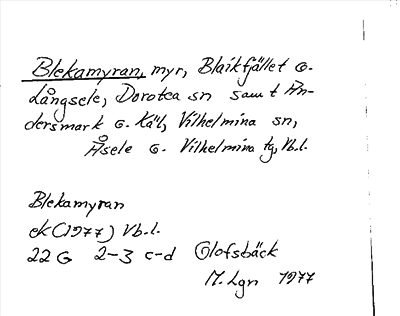 Blekamyran, myr, Blaikfjället o.
Långsele, Dorotea sn samt Ån-
dersmark o. Käl, Vilhelmina sn,
Åsele o. Vilhelmina tg, Vb.l.
Blekamyran
ek (1977) Vb.l.
22 G 2-3 c-d Olofsbäck
M. Lgn 1977